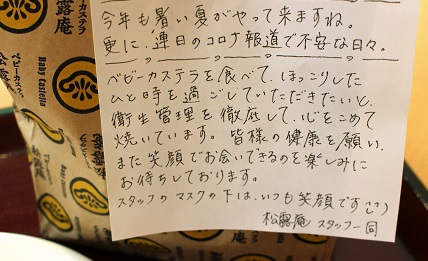 今年も暑い夏がやって来ますね。
更に、連日のコロナ報道で不安な日々。
ベビーカステラを食べて、ほっこりした
ひと時を過ごしていただきたいと、
衛生管理を徹底して、心をこめて
焼いています。皆様の健康を願い、
また笑顔でお会いできるのを楽しみに
お待ちしております。
スタッフのマスクの下は、いつも笑顔です
松露庵 スタッフ一同
松露庵
ベビーカステラ
Baby Castella